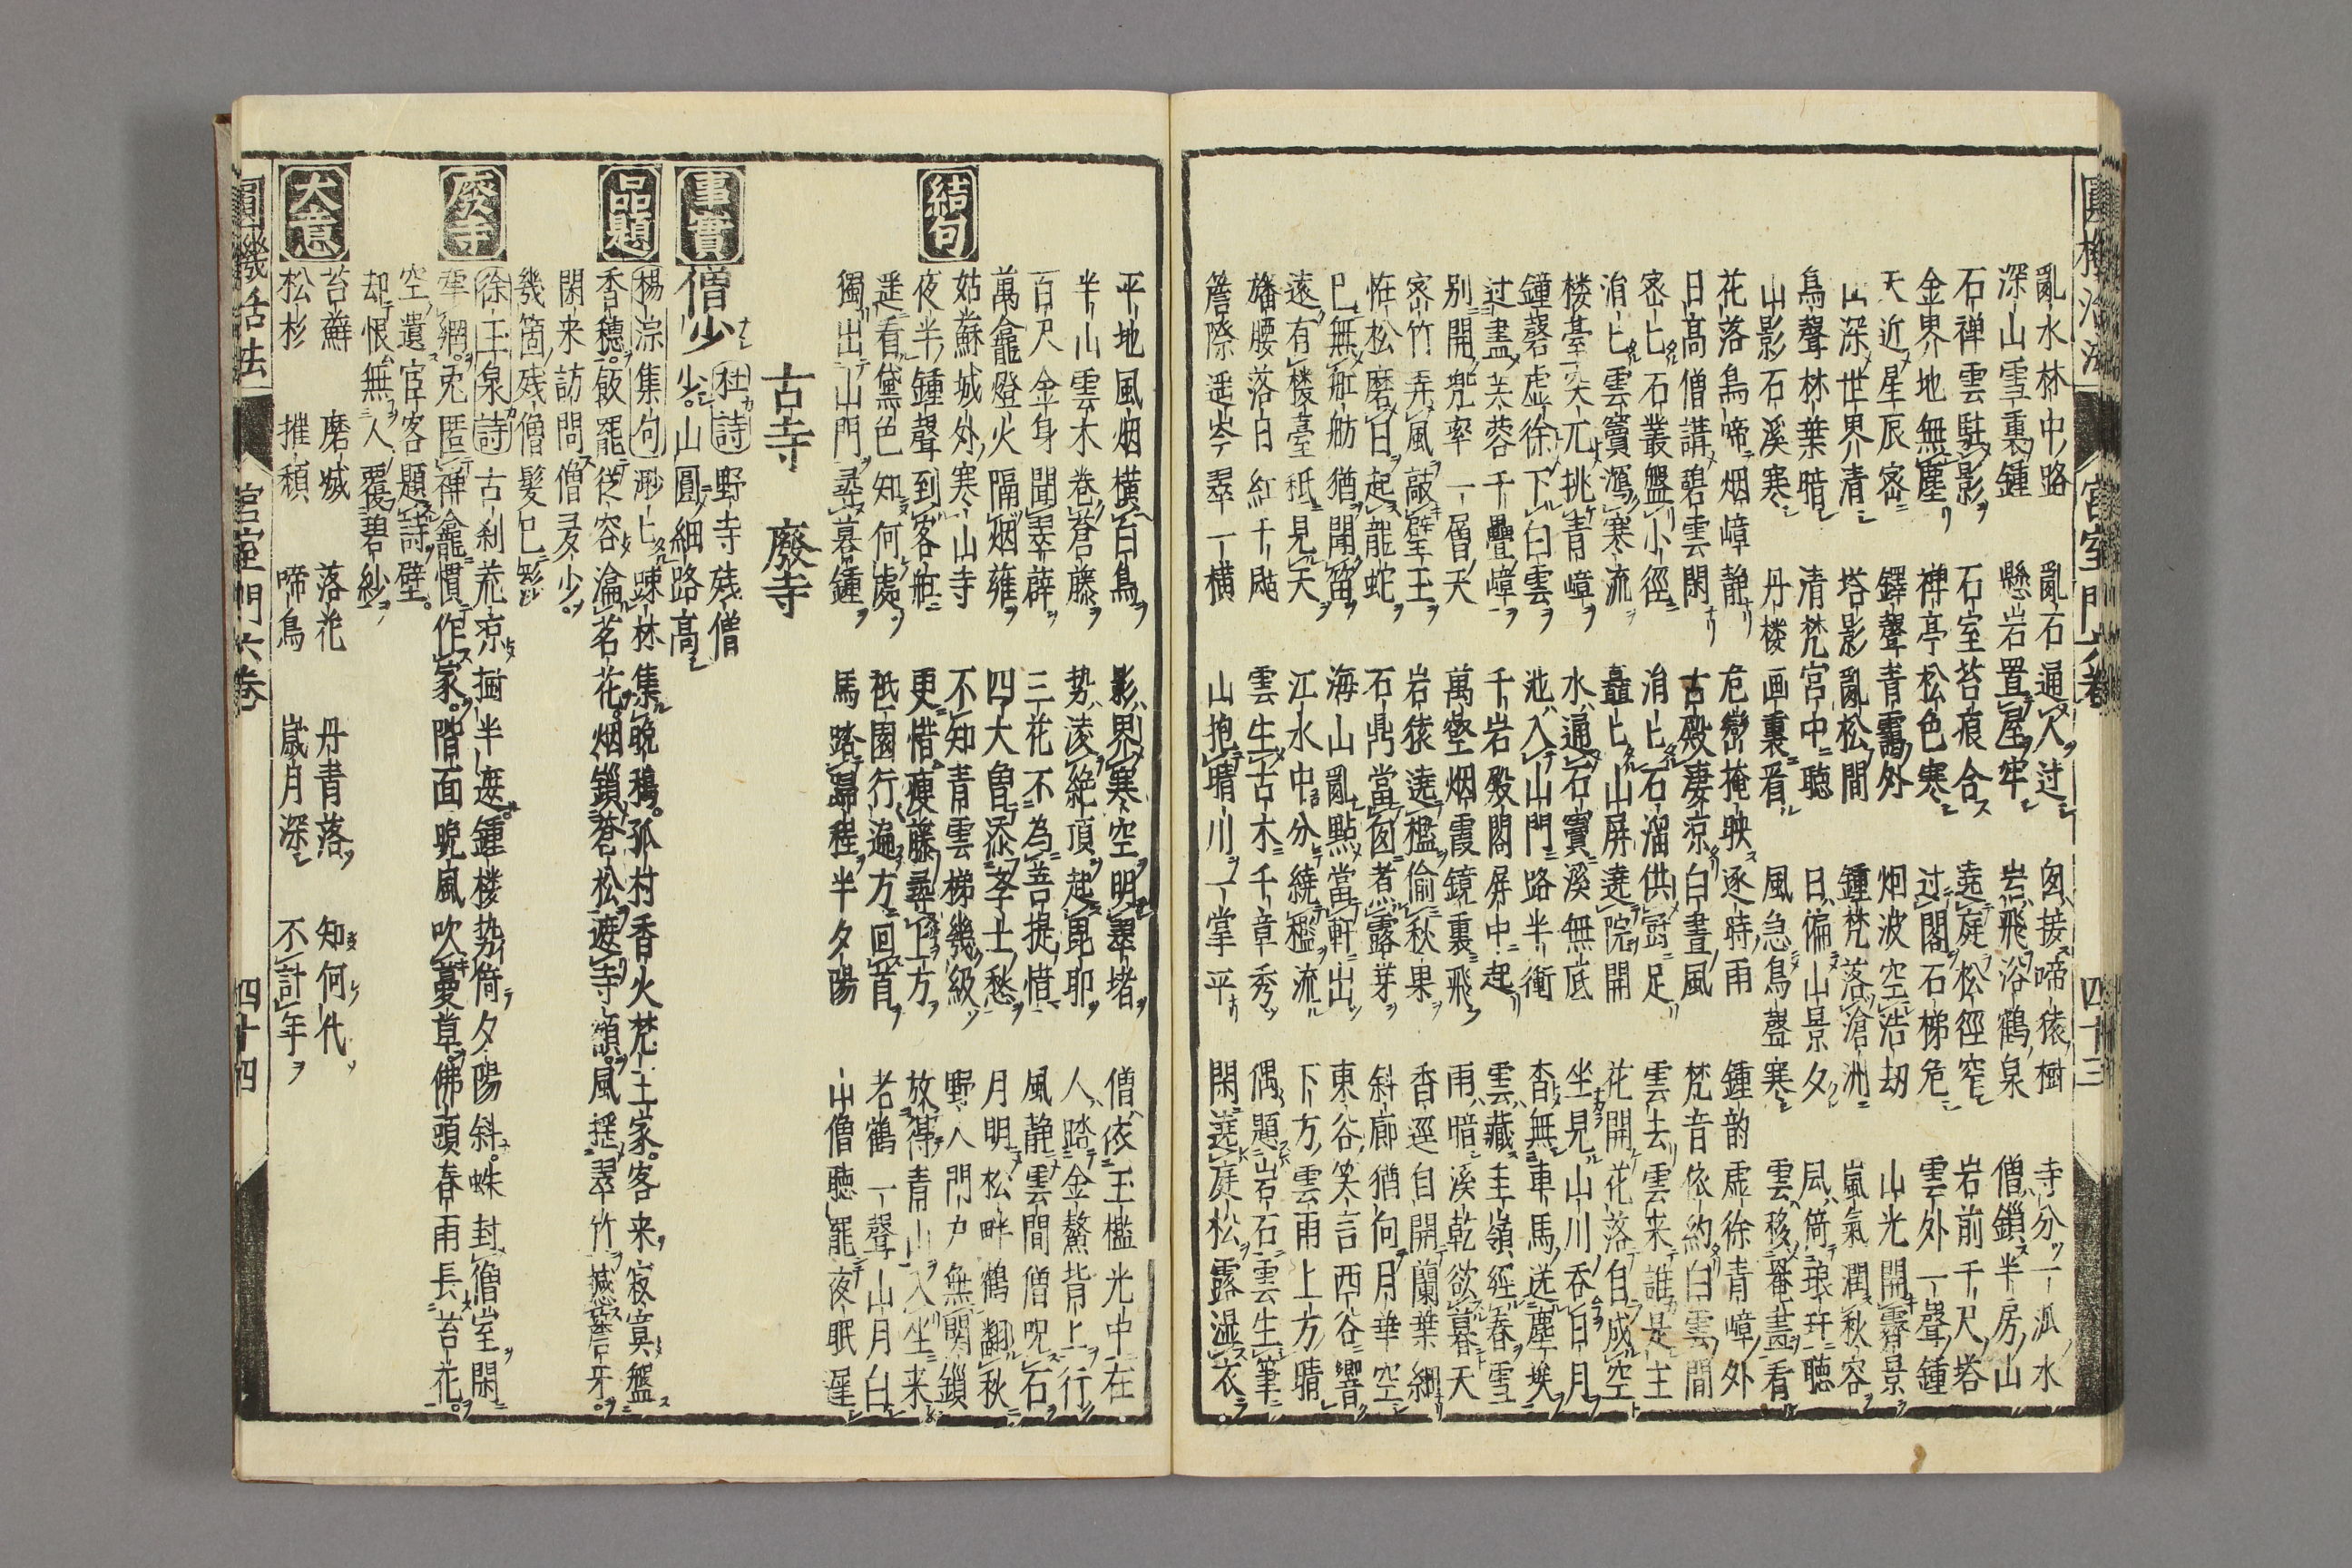 圓機活法 宮室門六卷 四十三
亂水林中路 亂石通人过 囱接啼猿樹 寺分一派水
深山雪裏鍾 懸岩置屋牢 岩飛浴鶴泉 僧鎖半房山
石禅雲駐影 石室苔痕合 遶庭松徑窄 岩前千尺塔
金界地無塵 禅亭松色寒 过閣石梯危 雲外一聲鍾
天近星辰密 鐸聲青靄外 烟波空浩劫 山光開霽景
山深世界清 塔影亂松間 鍾梵落滄洲 嵐氣潤秋容
鳥聲林葉暗 清梵宮中聽 日偏山景夕 風倚琅玕聽
山影石溪寒 丹楼画裏看 風急鳥聲寒 雲移罨畫看
花落鳥啼烟嶂静 危巒掩映逐時雨 鍾韵虚徐青嶂外
日高僧講碧雲閑 古殿凄凉白晝風 梵音依約白雲間
密匕石叢盤小徑 涓匕石溜供厨足 雲去雲来誰是主
涓匕雲竇瀉寒流 矗匕山屏遶院開 花開花落自成空
楼臺突兀挑青嶂 水通石竇溪無底 坐見山川吞日月
鐘磬虚徐下白雲 池入山門路半衝 杳無車馬送塵埃
过盡芙蓉千疊嶂 千岩殿閣屏中起 雲藏圭嶺經春雪
别開兜率一層天 萬壑烟霞鏡裏飛 雨暗溪乾欲暮天
密竹弄風敲壁玉 岩猿遶檻偷秋果 香逕自開蘭葉細
恠松磨日起龍蛇 石鼎當囱煮露芽 斜廊猶向月華空
已無舡舫猶聞笛 海山亂點當軒出 東谷笑言西谷響
遠有楼臺秪見天 江水中分繞檻流 下方雲雨上方晴
旛腰落日紅千颭 雲生古木千章秀 偶題岩石雲生筆
簷際遥岑翠一横 山抱晴川一掌平 閑遶庭松露濕衣
平地風烟横白鳥 影界寒空明翠堵 僧依玉檻光中在
半山雲木卷蒼藤 势凌絶頂起毘耶 人踏金鰲背上行
結句
百尺金身聞翠薜 三花不為菩提惜 風静雲間僧呪石
萬龕燈火隔烟雍 四大魯添孝士愁 月明松畔鶴翻秋
姑蘇城外寒山寺 不知青雲梯幾級 野人門户無関鎖
夜半鍾聲到客船 更惜瘦藤尋上方 放得青山入坐来
遥看黛色知何處 秪園行遍方回首 老鶴一聲山月白
獨出山門尋暮鍾 馬踏歸程半夕陽 山僧聽罷夜眠遲
古寺 廢寺
事實
僧少 杜詩 野寺殘僧
少山圓細路高
品題
楊淙集句 渺匕踈林集晩鴉孤村香火梵王家客来寂寞盤
香穗飯罷従容瀹茗花烟鎖蒼松遮寺額風揺翠竹撼簷牙
閑来訪問僧及少
幾箇殘僧髪已髿
廢寺
徐玉泉詩 古刹荒凉樹半遮鍾楼势倚夕陽斜蛛封僧室閑
牽網兎匿禅龕慣作家階面晩風吹蔓草佛頭春雨長苔花
空遺宦客題詩壁
却恨無人覆碧紗
大意
苔蘚 磨滅 落花 丹青落 知何代
松杉 摧頽 啼鳥 歳月深 不計年
圓機活法 宮室門六卷 四十四